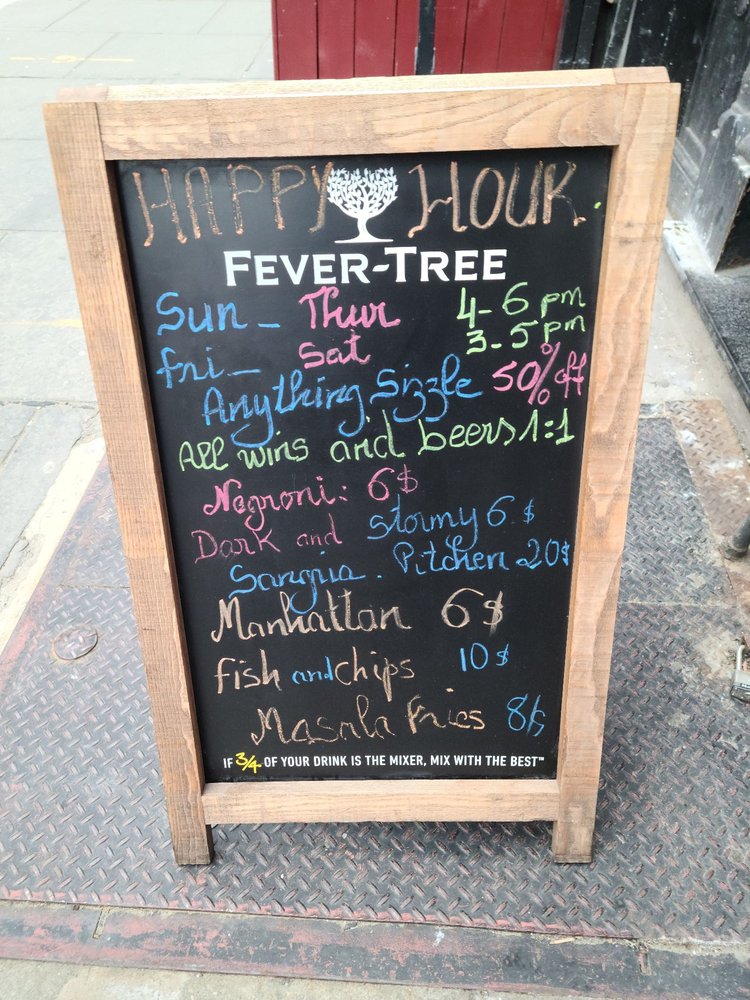 HAPPY HOUR.
FEVER-TREE
Sun - Thur 4-6 pm
fri - Sat 3-5 pm
Anything Sizzle 50% off
All wins and beers 1:1
Negroni: 6$
Dark and stormy 6$
Sangria. Pitcher 20$
Manhattan 6$
fish and chips 10$
Masala Fries 8$
IF 3/4 OF YOUR DRINK IS THE MIXER, MIX WITH THE BEST™